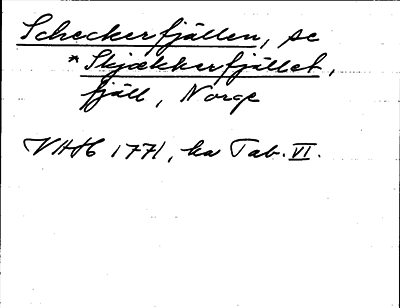 Scheckerfjällen, se
*Skjækkerfjället,
fjäll, Norge
VHH 1771, ka Tab. VI.